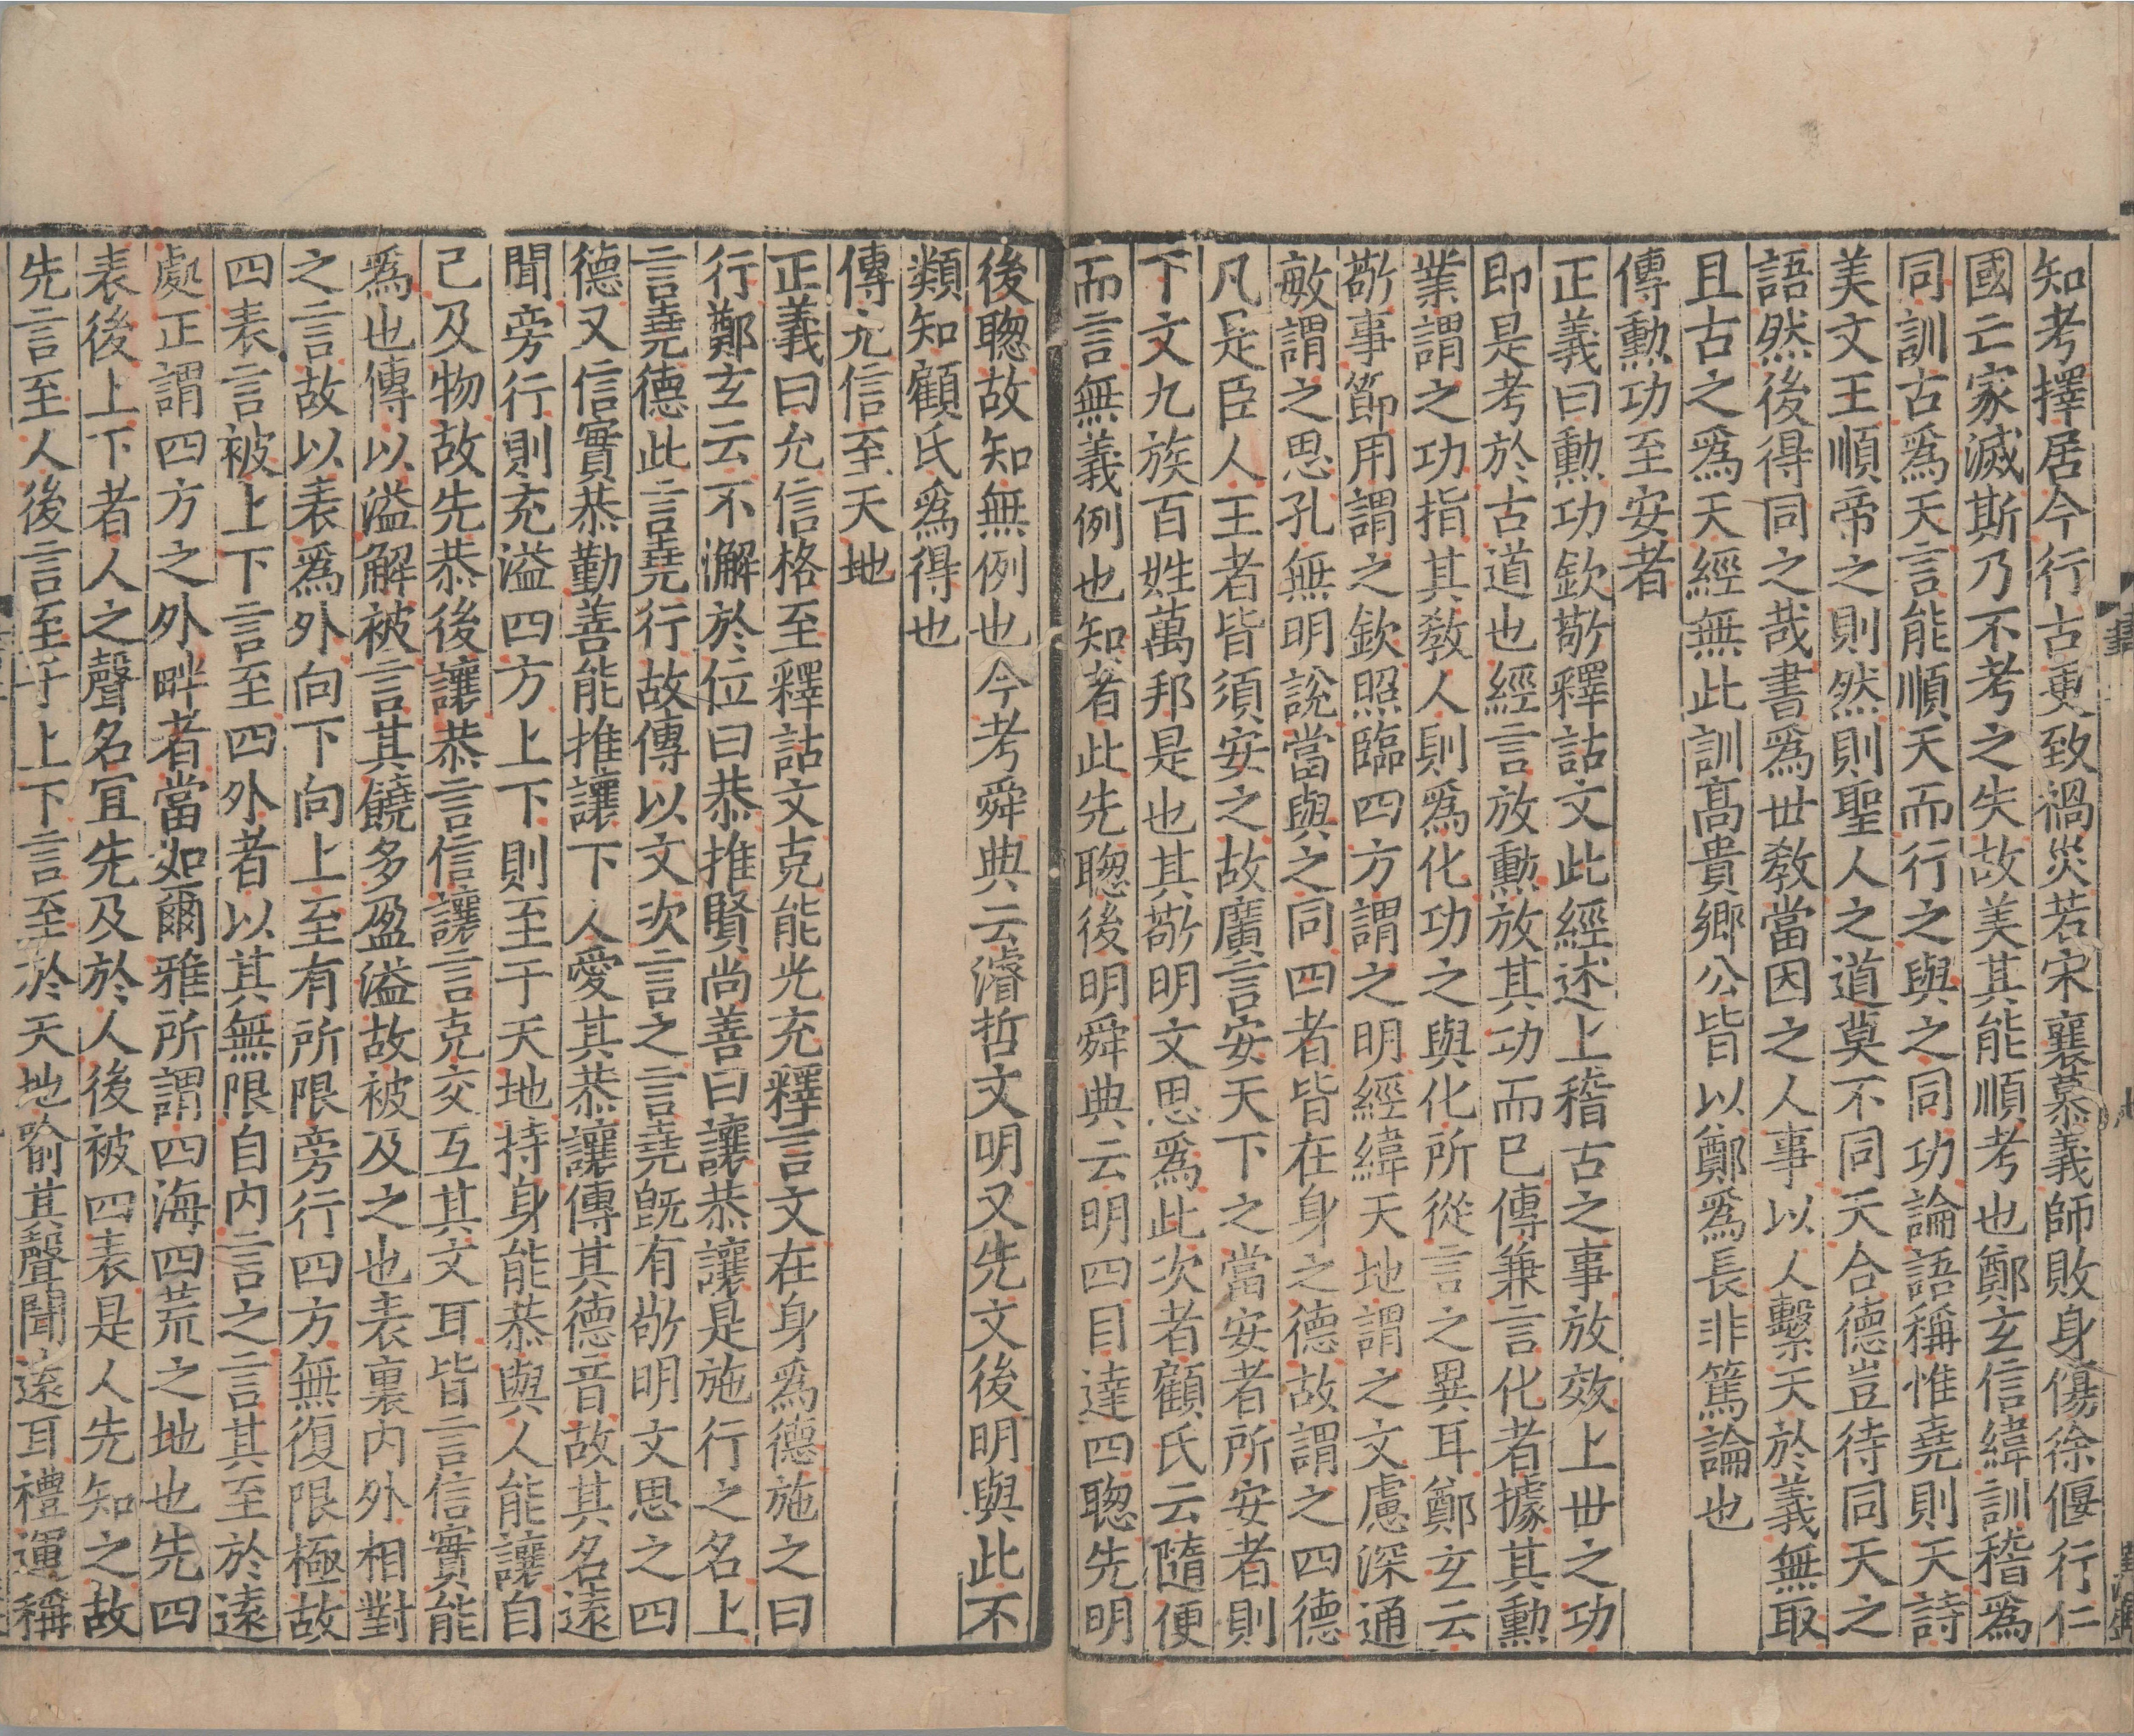 知考擇居今行古更致禍災若宋襄慕義師敗身傷徐偃行仁
國亡家滅斯乃不考之失故美其能順考也鄭玄信緯訓稽為
同訓古為天言能順天而行之與之同功論語稱惟堯則天詩
美文王順帝之則然則聖人之道莫不同天合德豈待同天之
語然後得同之哉書為世教當因之人事以人繫天於義無取
且古之為天經無此訓高貴鄉公皆以鄭為長非篤論也
傳勳功至安者
正義曰勳功欽敬釋詁文此經述上稽古之事放效上世之功
即是考於古道也經言放勳放其功而已傳兼言化者據其勳
業謂之功指其教人則為化功之與化所從言之異耳鄭玄云
敬事節用謂之欽照臨四方謂之明經緯天地謂之文慮深通
敏謂之思孔無明說當與之同四者皆在身之德故謂之四德
凡是臣人王者皆須安之故廣言安天下之當安者所安者則
下文九族百姓萬邦是也其敬明文思為此次者顧氏云隨便
而言無義例也知者此先聰後明舜典云明四目達四聰先明
後聰故知無例也今考舜典云濬哲文明又先文後明與此不
類知顧氏為得也
傳允信至天地
正義曰允信格至釋詁文克能光充釋言文在身為德施之曰
行鄭玄云不懈於位曰恭推賢尚善曰讓恭讓是施行之名上
言堯德此言堯行故傳以文次言之言堯既有敬明文思之四
德又信實恭勤善能推讓下人愛其恭讓傳其德音故其名遠
聞旁行則充溢四方上下則至于天地持身能恭與人能讓自
己及物故先恭後讓恭言信讓言克交互其文耳皆言信實能
為也傳以溢解被言其饒多盈溢故被及之也表裏內外相對
之言故以表為外向下向上至有所限旁行四方無復限極故
四表言被上下言至四外者以其無限自內言之言其至於遠
處正謂四方之外畔者當如爾雅所謂四海四荒之地也先四
表後上下者人之聲名宜先及於人後被四表是人先知之故
先言至人後言至于上下言至於天地喻其聲聞遠耳禮運稱